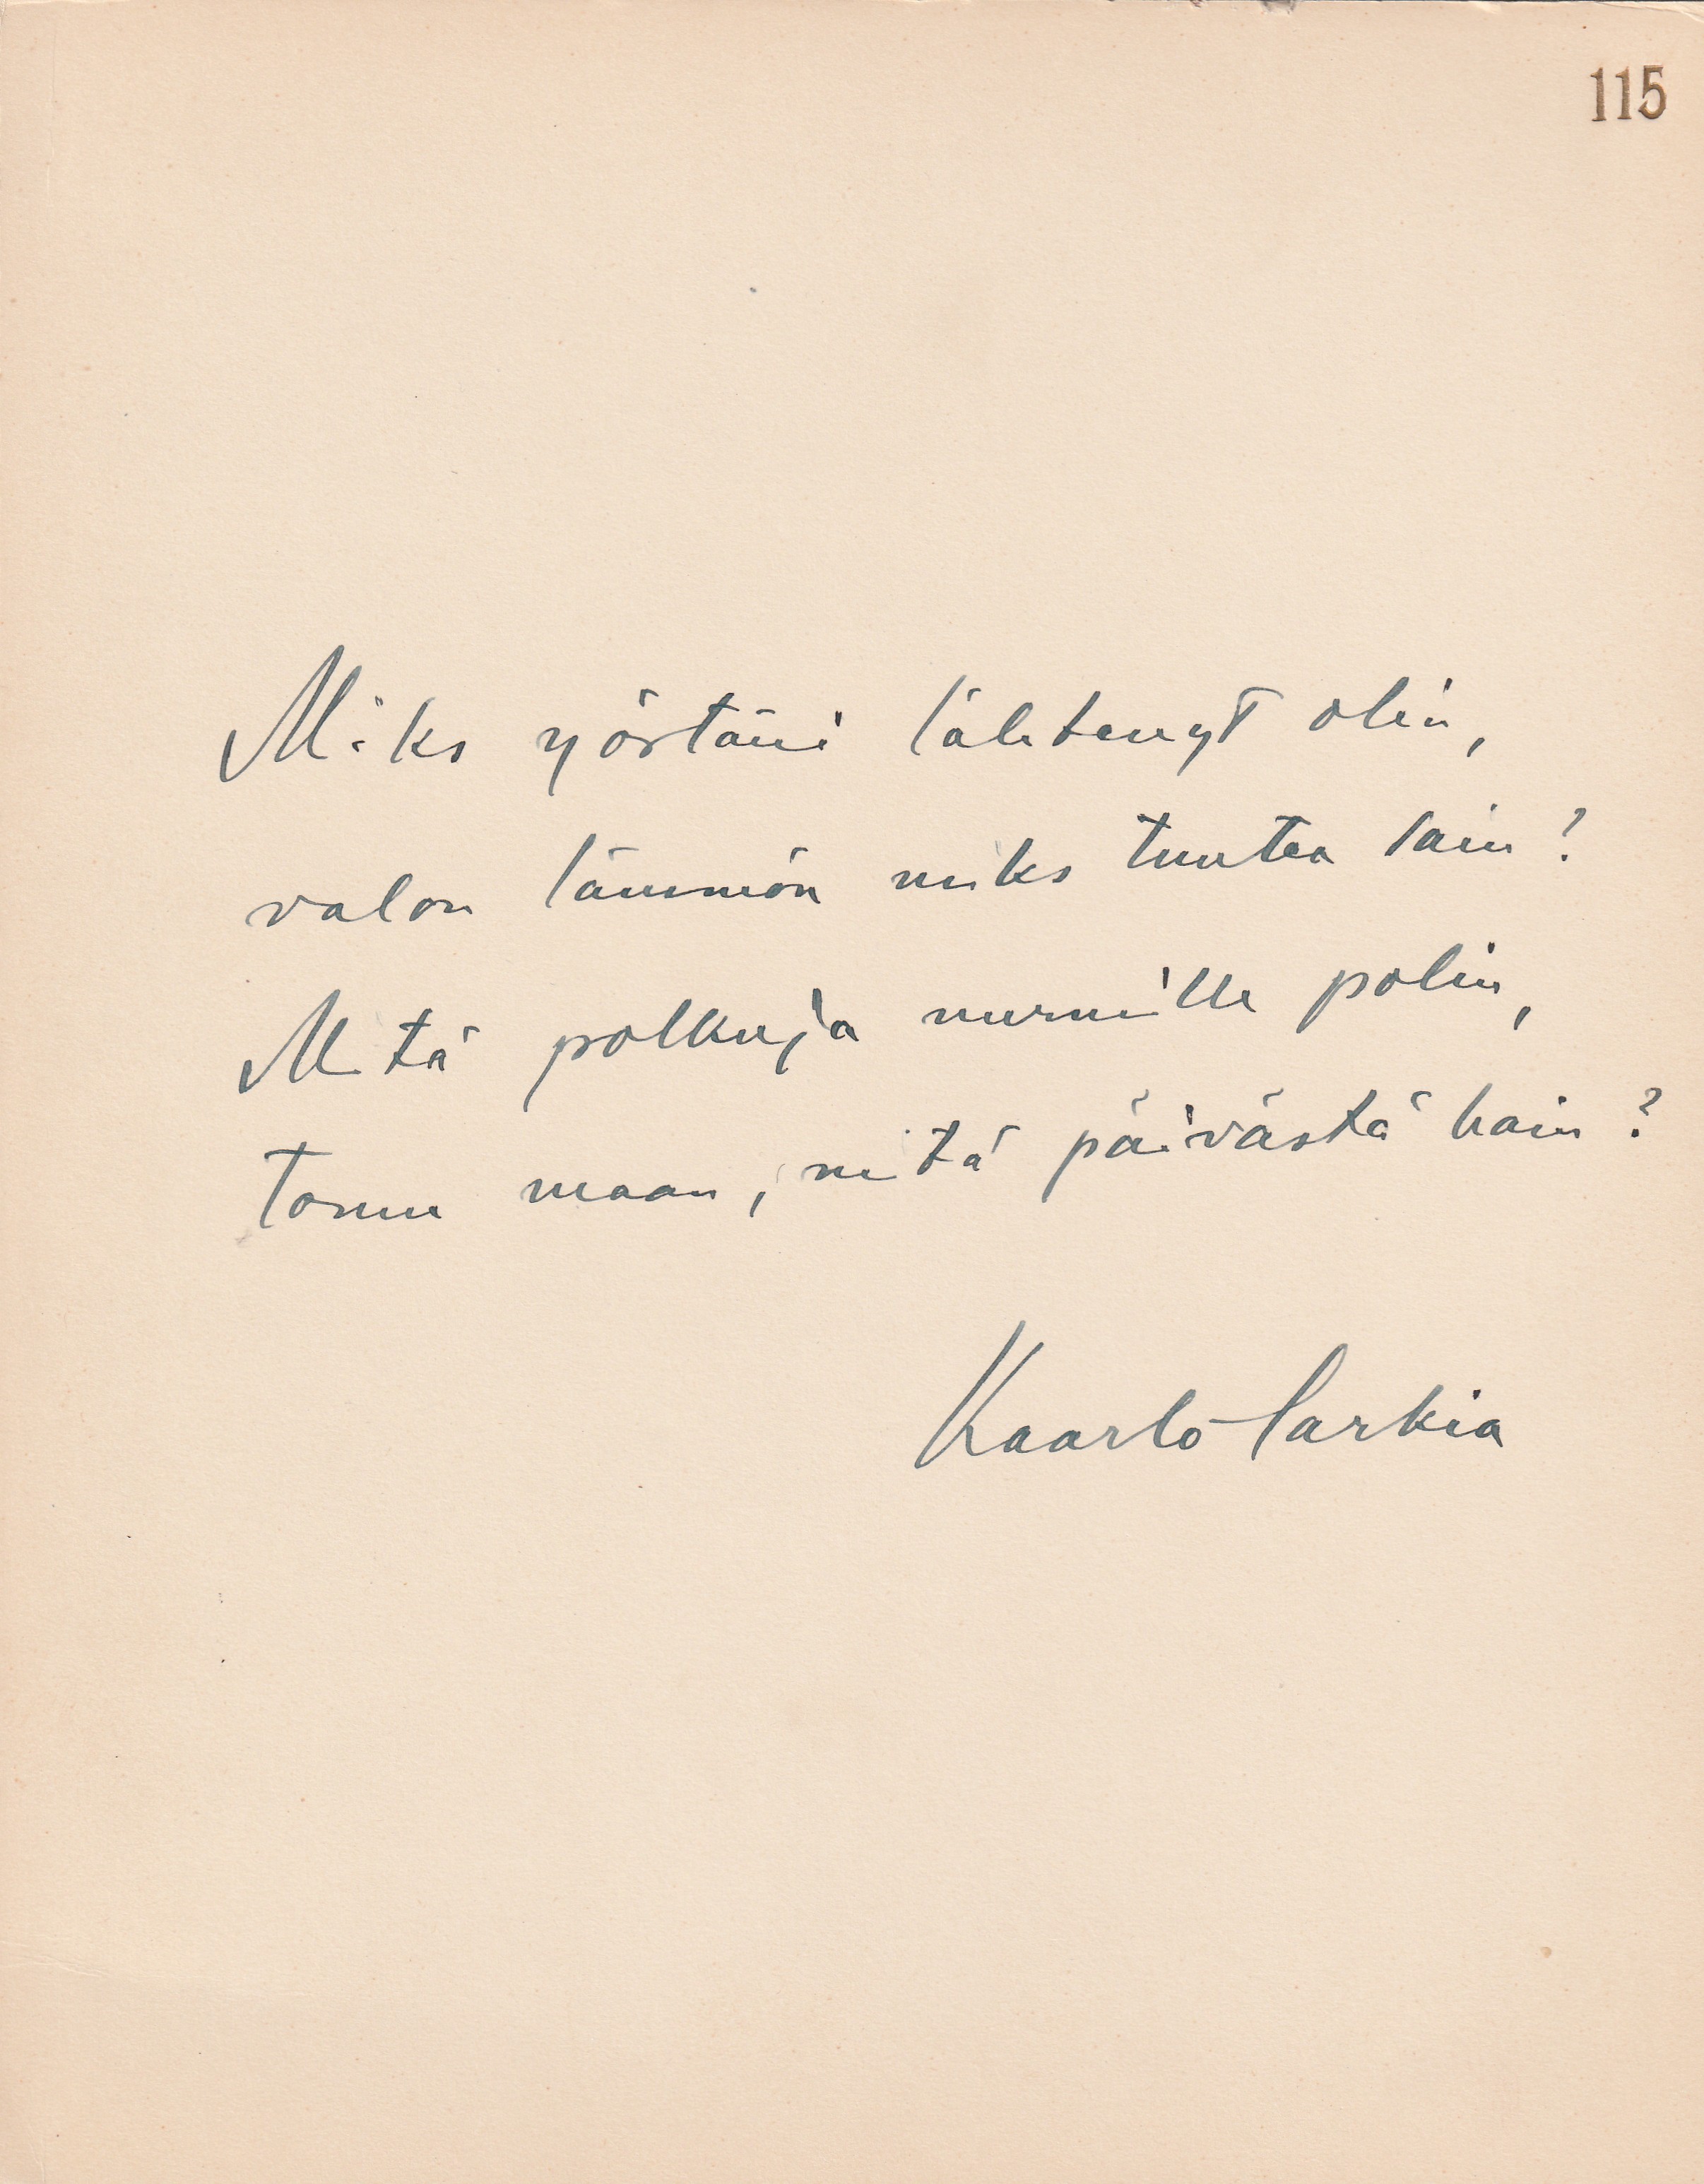 115
Miks yöstäni lähtenyt olin,
valon lämmön miks tuntea sain?
Mitä polkuja nurmille polin,
tomu maan, mitä päivästä hain?
Kaarlo Sarkia